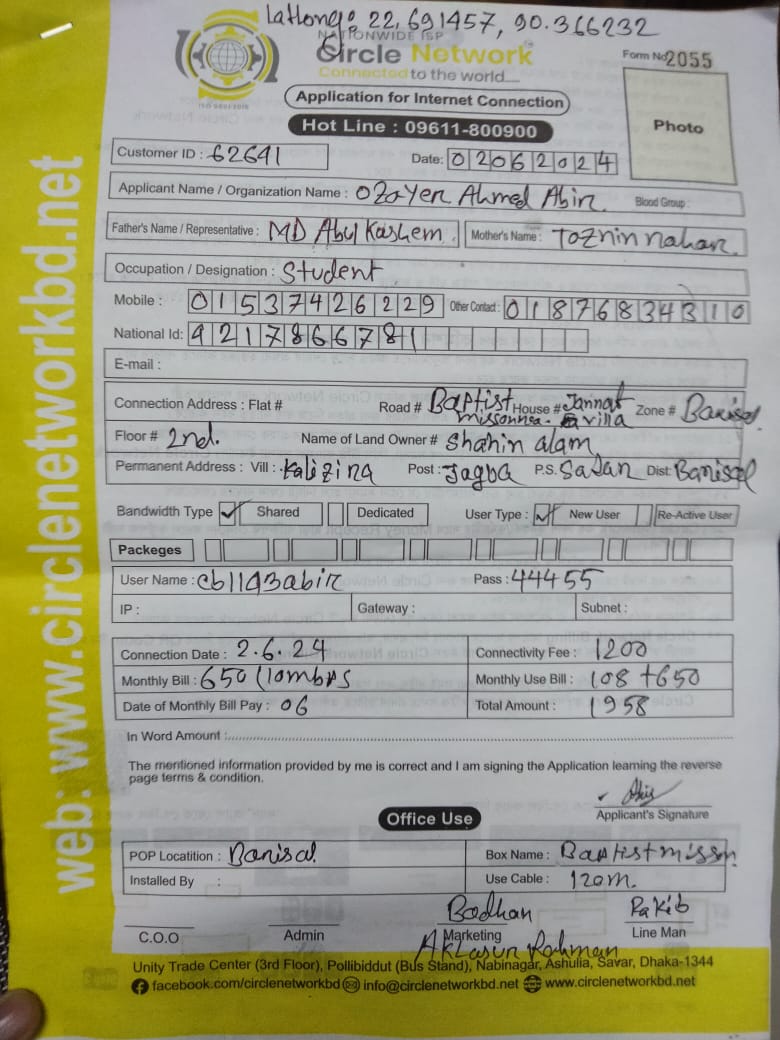 Latlong: 22.691457, 90.366232
NATIONWIDE ISP
Circle Network
Connected to the world....
ISO 9001:2015
Form No 2055
Application for Internet Connection
Hot Line : 09611-800900
Photo
Customer ID : 62641
Date: 02062024
Applicant Name / Organization Name : Ozayer Ahmed Abir. Blood Group :
Father's Name / Representative : MD Abul Kashem. Mother's Name : Toznin nahar.
Occupation / Designation : Student
Mobile : 01537426229 Other Contact : 01876834310
National Id: 4217866781
E-mail :
Connection Address : Flat # Road # Baptist missonnea. House # Jannat villa Zone # Barisal.
Floor # 2nd. Name of Land Owner # Shahin alam
Permanent Address : Vill : Kalizira Post : Jagua P.S. Sadar Dist: Barisal
Bandwidth Type ✓ Shared Dedicated User Type : ✓ New User Re-Active User
Packeges
User Name : cb1193abir Pass : 44455
IP : Gateway : Subnet :
Connection Date : 2.6.24 Connectivity Fee : 1200
Monthly Bill : 650 (10mbps Monthly Use Bill : 108 +650
Date of Monthly Bill Pay : 06 Total Amount : 1958
In Word Amount :
The mentioned information provided by me is correct and I am signing the Application learning the reverse
page terms & condition.
Abir
Applicant's Signature
Office Use
POP Locatition : Barisal Box Name : Baptist missn.
Installed By : Use Cable : 120m.
Badhan Rakib
C.O.O Admin Marketing Line Man
Rahman
Unity Trade Center (3rd Floor), Pollibiddut (Bus Stand), Nabinagar, Ashulia, Savar, Dhaka-1344
facebook.com/circlenetworkbd info@circlenetworkbd.net www.circlenetworkbd.net
web: www.circlenetworkbd.net